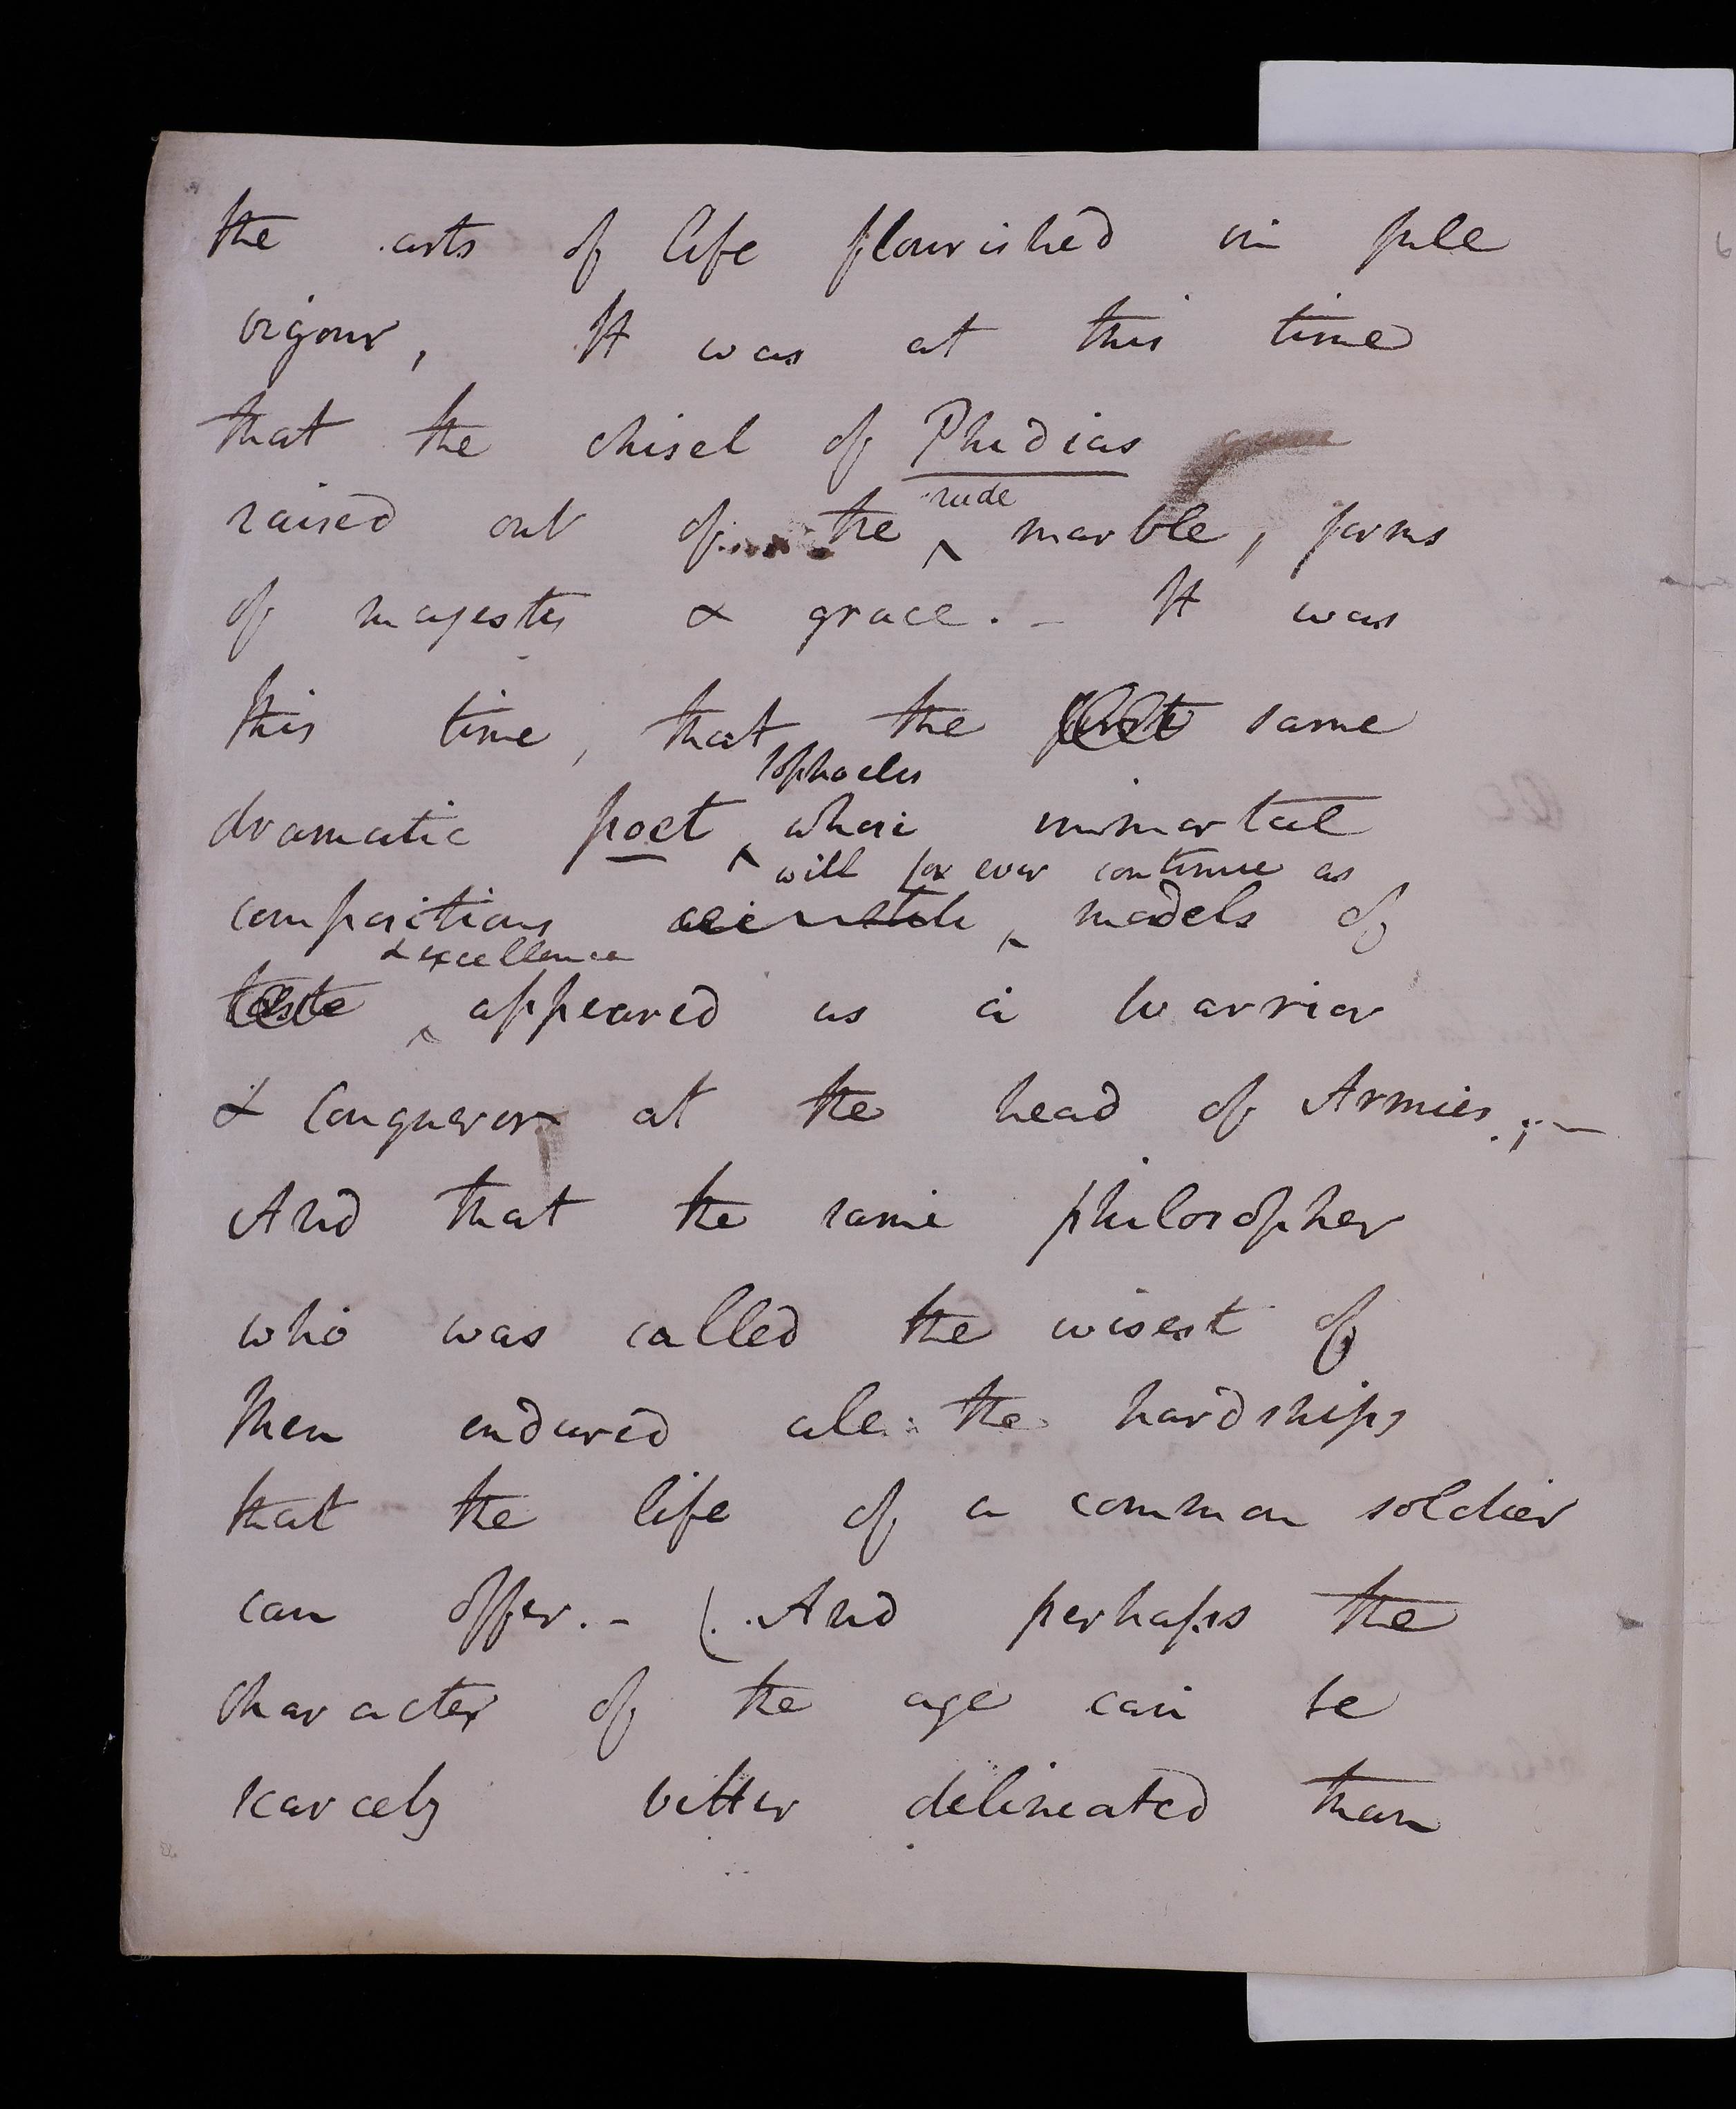 the arts of life flourished in full
vigour, It was at this time
that the chisel of Phidias
rude
raised out of the ^ marble, forms
of majesty & grace. - It was
this time, that the same
Sophocles
dramatic poet ^ whose immortal
will for ever continue as
compositions ^ models of
& excellence
taste ^ appeared as a warrior
& Conqueror at the head of Armies.;-
And that the same philosopher
who was called the wisest of
Men endured all the hardships
that the life of a common soldier
can offer. - (. And perhaps the
character of the age can be
scarcely better delineated than